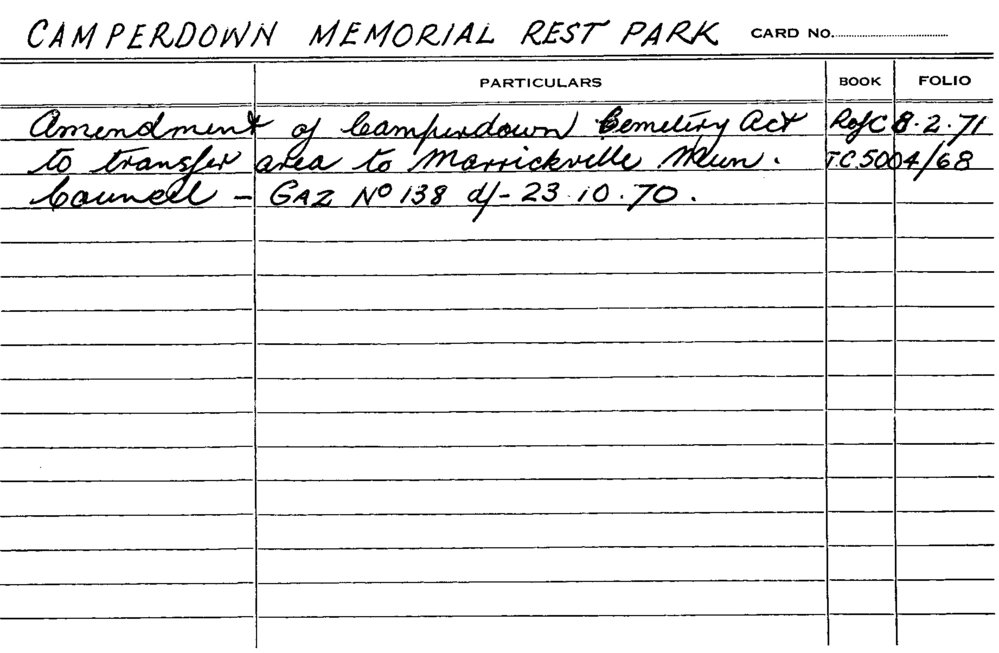 CAMPERDOWN MEMORIAL REST PARK CARD NO.
PARTICULARS BOOK FOLIO
Amendment of Camperdown Cemetery Act RofC 8.2.71
to transfer area to Marrickville Mun. T.C.5004/68
Council - GAZ No 138 d/- 23.10.70.